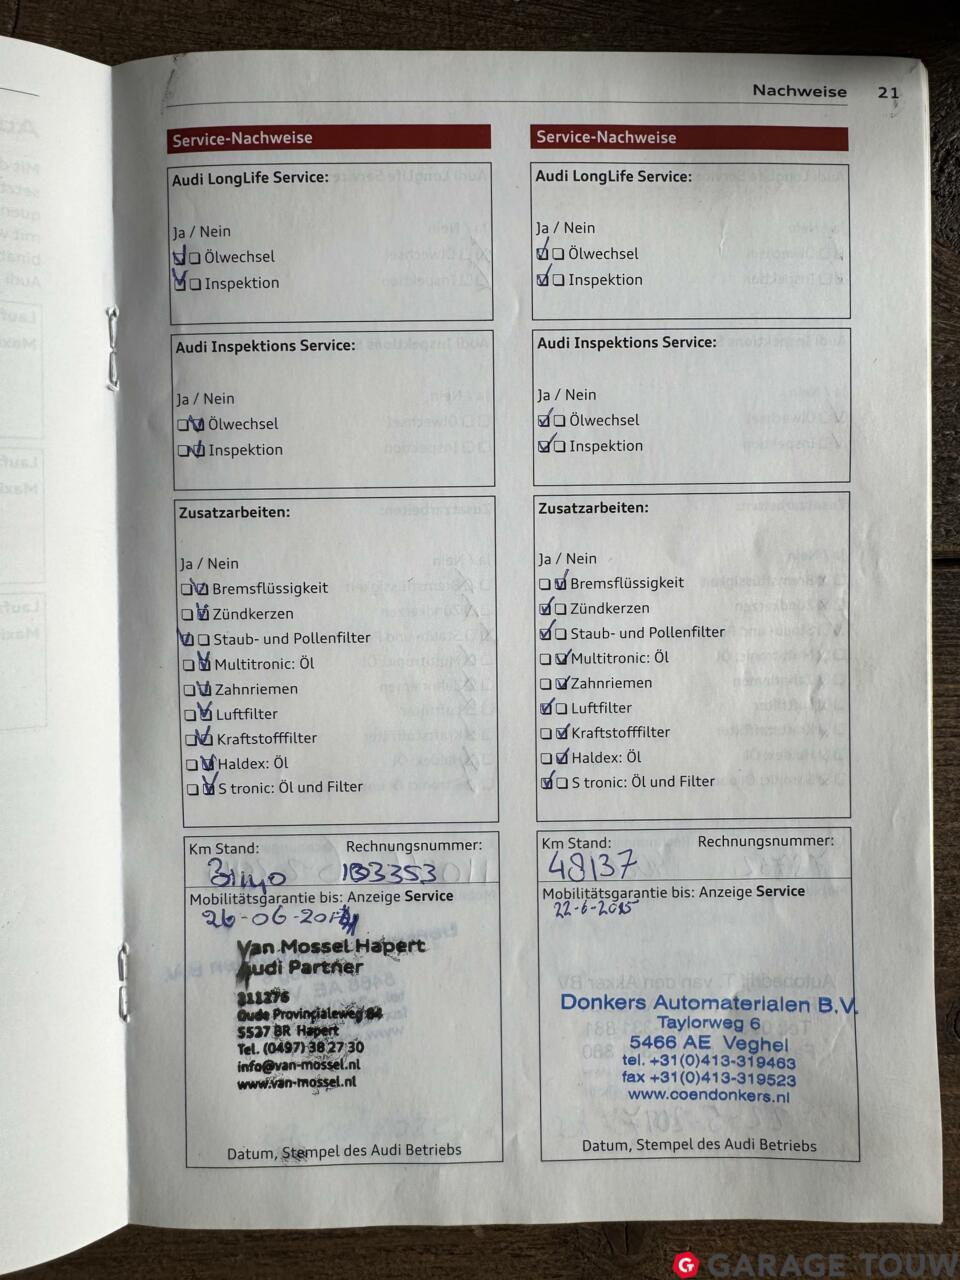 Nachweise 21
Service-Nachweise
Audi LongLife Service:
Ja / Nein
Ölwechsel
Inspektion
Audi Inspektions Service:
Ja / Nein
Ölwechsel
Inspektion
Zusatzarbeiten:
Ja / Nein
Bremsflüssigkeit
Zündkerzen
Staub- und Pollenfilter
Multitronic: Öl
Zahnriemen
Luftfilter
Kraftstofffilter
Haldex: Öl
S tronic: Öl und Filter
Km Stand: Rechnungsnummer:
133353
Mobilitätsgarantie bis: Anzeige Service
26-06-2014
Van Mossel Hapert
Audi Partner
211276
Oude Provincialeweg 84
5527 BR Hapert
Tel. (0497) 38 27 30
info@van-mossel.nl
www.van-mossel.nl
Datum, Stempel des Audi Betriebs
Service-Nachweise
Audi LongLife Service:
Ja / Nein
Ölwechsel
Inspektion
Audi Inspektions Service:
Ja / Nein
Ölwechsel
Inspektion
Zusatzarbeiten:
Ja / Nein
Bremsflüssigkeit
Zündkerzen
Staub- und Pollenfilter
Multitronic: Öl
Zahnriemen
Luftfilter
Kraftstofffilter
Haldex: Öl
S tronic: Öl und Filter
Km Stand: Rechnungsnummer:
48137
Mobilitätsgarantie bis: Anzeige Service
22-6-2015
Donkers Automaterialen B.V.
Taylorweg 6
5466 AE Veghel
tel. +31(0)413-319463
fax +31(0)413-319523
www.coendonkers.nl
Datum, Stempel des Audi Betriebs
GARAGE TOUW